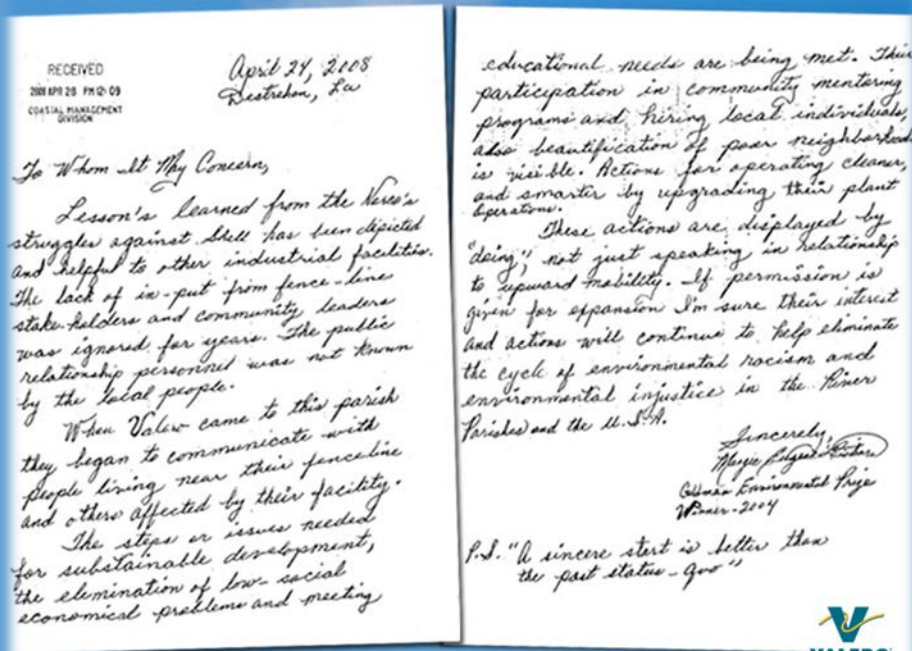 RECEIVED
2008 APR 28 PM 12:09
COASTAL MANAGEMENT
DIVISION
April 24, 2008
Destrehan, La
To Whom It May Concern,
Lesson's learned from the Norco's
struggles against Shell has been depicted
and helpful to other industrial facilities.
The lack of in-put from fence-line
stake-holders and community leaders
was ignored for years. The public
relationship personnel was not known
by the local people.
When Valero came to this parish
they began to communicate with
people living near their fenceline
and others affected by their facility.
The steps or issues needed
for substainable development,
the elemination of low-social
economical problems and meeting
educational needs are being met. Their
participation in community mentoring
programs and hiring local individuals,
also beautification of poor neighborhoods
is visible. Actions for operating cleaner,
and smarter by upgrading their plant
operations.
These actions are displayed by
"doing", not just speaking in relationship
to upward mobility. If permission is
given for expansion I'm sure their interest
and actions will continue to help eliminate
the cycle of environmental racism and
environmental injustice in the River
Parishes and the U.S.A.
Sincerely,
Margie Eugene-Richard
Goldman Environmental Prize
Winner-2004
P.S. "A sincere start is better than
the past status-quo"
VALERO